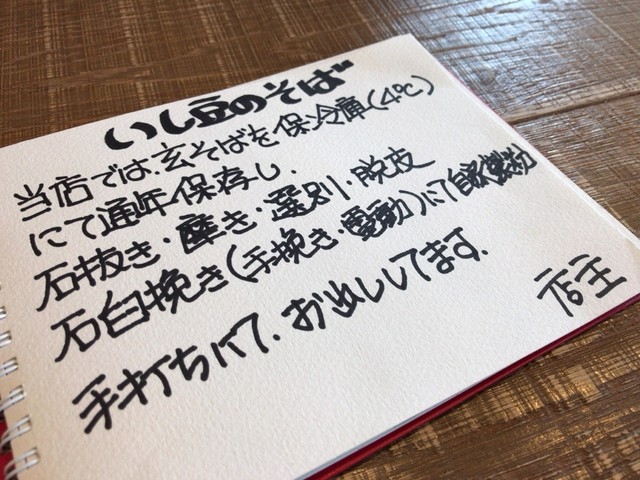 いし豆のそば
当店では、玄そばを保冷庫(4℃)
にて通年保存し、
石抜き・磨き・選別・脱皮
石臼挽き(手挽き・電動)にて自家製粉
手打ちにて、お出ししてます。
店主